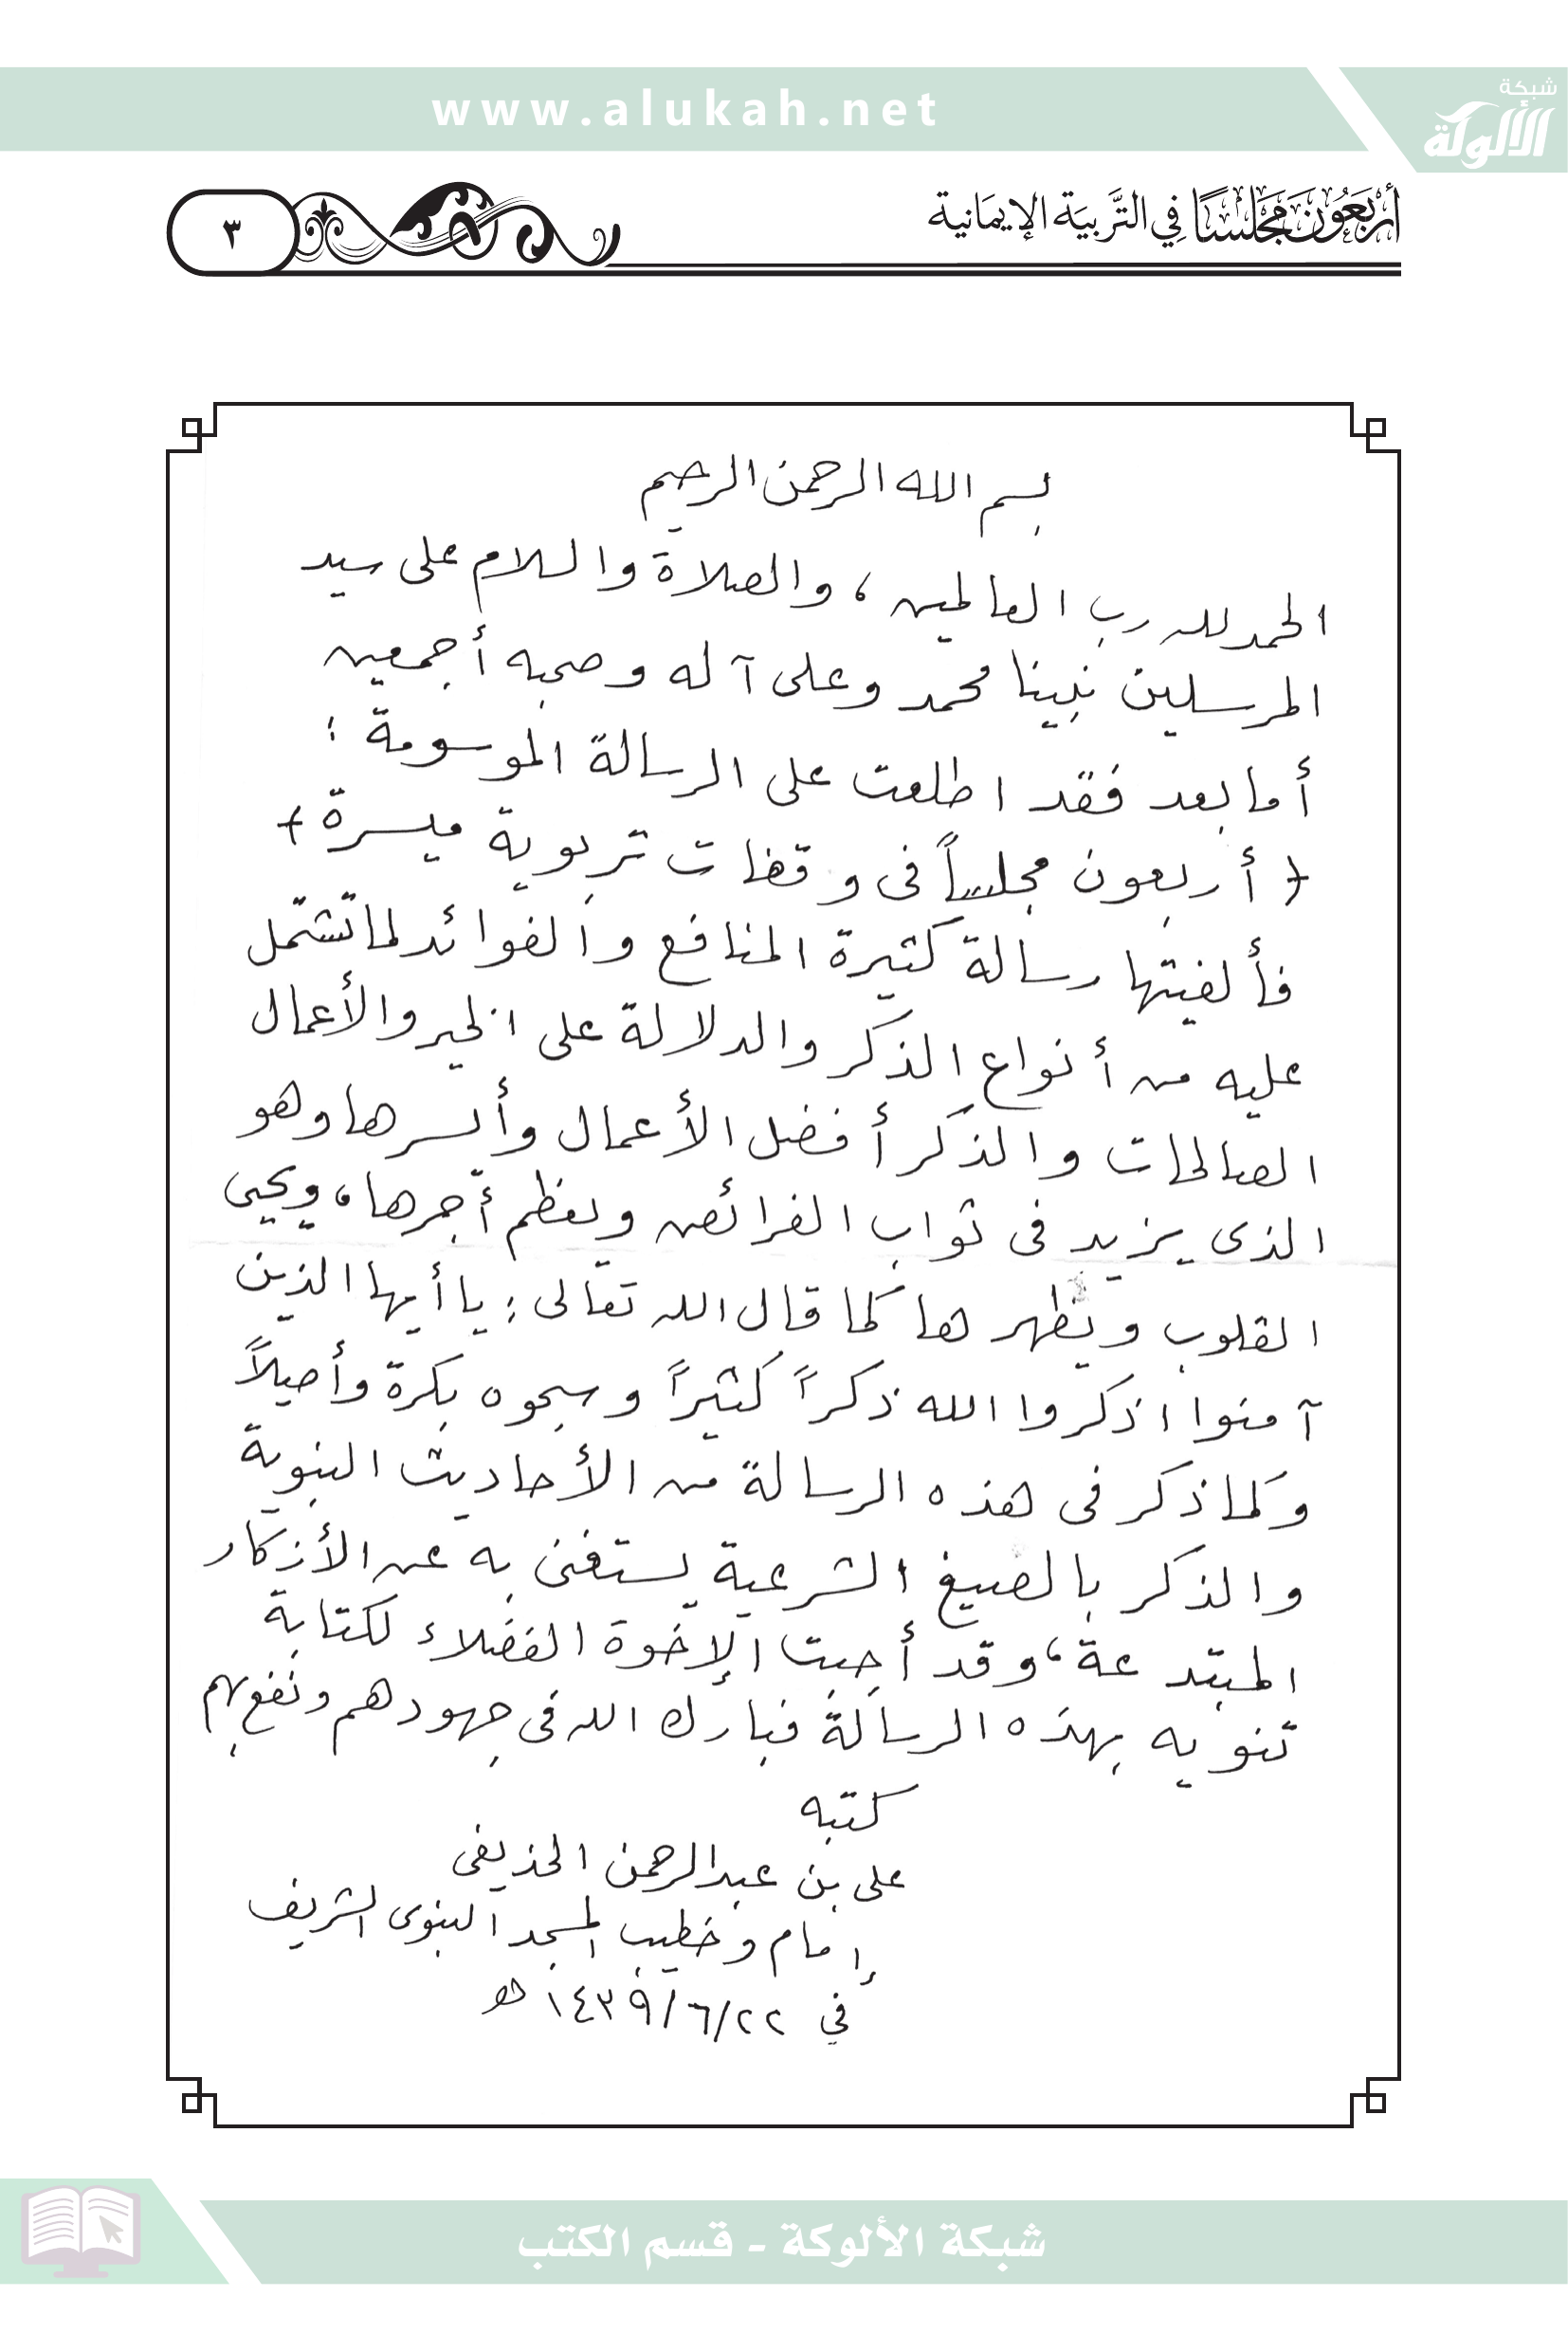 www.alukah.net
شبكة
الألوكة
أَرْبَعُونَ مَجْلِسًا فِي التَّربِيَة الإِيمَانية
٣
بسم الله الرحمن الرحيم
الحمد لله رب العالمين، والصلاة والسلام على سيد
المرسلين نبينا محمد وعلى آله وصحبه أجمعين
أما بعد فقد اطلعت على الرسالة الموسومة:
(أربعون مجلساً في وقفات تربوية ميسرة)
فألفيتها رسالة كثيرة المنافع والفوائد لما تشتمل
عليه من أنواع الذكر والدلالة على الخير والأعمال
الصالحات والذكر أفضل الأعمال وأيسرها وهو
الذي يزيد في ثواب الفرائض ويعظم أجرها، ويحيي
القلوب ويطهرها كما قال الله تعالى: يا أيها الذين
آمنوا اذكروا الله ذكراً كثيراً وسبحوه بكرة وأصيلاً
وكما ذكر في هذه الرسالة من الأحاديث النبوية
والذكر بالصيغ الشرعية يستغنى به عن الأذكار
المبتدعة، وقد أجبت الإخوة الفضلاء لكتابة
تنويه بهذه الرسالة فبارك الله في جهودهم ونفع بهم
كتبه
علي بن عبدالرحمن الحذيفي
إمام وخطيب المسجد النبوي الشريف
في ١٤٣٩/٦/٢٢ هـ
شبكة الألوكة - قسم الكتب